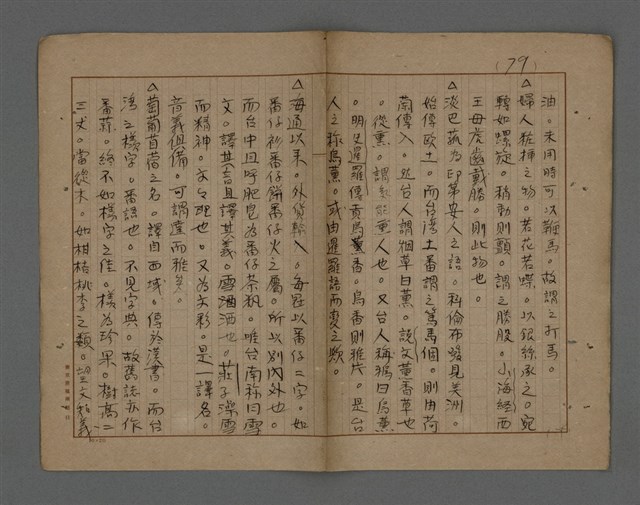 (79)
油。未用時可以騸馬。故謂之打馬。
△婦人粧揷之物。若花若蝶。以銀絲承之。宛
轉如螺旋。稍動則顫。謂之勝股。小海經西
王母虎齒戴勝。則此物也。
△淡巴菰為印第安人之語。科倫布發見美洲。
始傳歐土。而台灣土番謂之篤馬個。則由荷
蘭傳入。然台人謂烟草曰薰。說文薰香草也
。從熏。謂氣能熏人也。又台人稱鴉曰烏薰
。明史暹羅傳貢烏薰香。烏香則雅片。是台
人之称烏薰。或由暹羅語而变之歟。
△海通以來。外貨輸入。每冠以番仔二字。如
番仔衫番仔餅番仔火之屬。所以別內外也。
而台中且呼肥皂為番仔茶帆。唯台南称曰雪
文。譯其音且譯其義。雪洒洒也。莊子澡雪
而精神。文々理也。又為文彩。是一譯名。
音義俱備。可謂達而雅矣。
△葡萄苜蓿之名。譯自西域。傳於漢書。而台
灣之檨字。番語也。不見字典。故舊誌亦作
番蒜。終不如檨字之佳。檨為珍果。樹高二
三丈。當從木。如柑桔桃李之類。望文知義